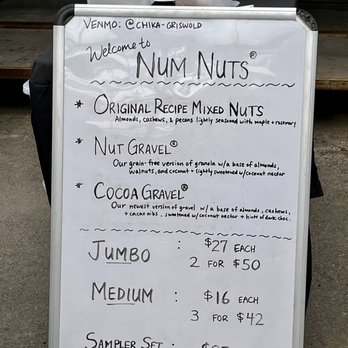 VENMO: @CHIKA-GRISWOLD
Welcome to
NUM NUTS®
* ORIGINAL RECIPE MIXED NUTS
Almonds, cashews, & pecans lightly seasoned with maple + rosemary
* NUT GRAVEL®
Our grain-free version of granola w/ a base of almonds,
walnuts, and coconut + lightly sweetened w/coconut nectar
* COCOA GRAVEL®
Our newest version of gravel w/ a base of almonds, cashews,
+ cacao nibs, sweetened w/coconut nectar + hint of dark choc.
JUMBO : $27 EACH
2 FOR $50
MEDIUM : $16 EACH
3 FOR $42
SAMPLER SET :